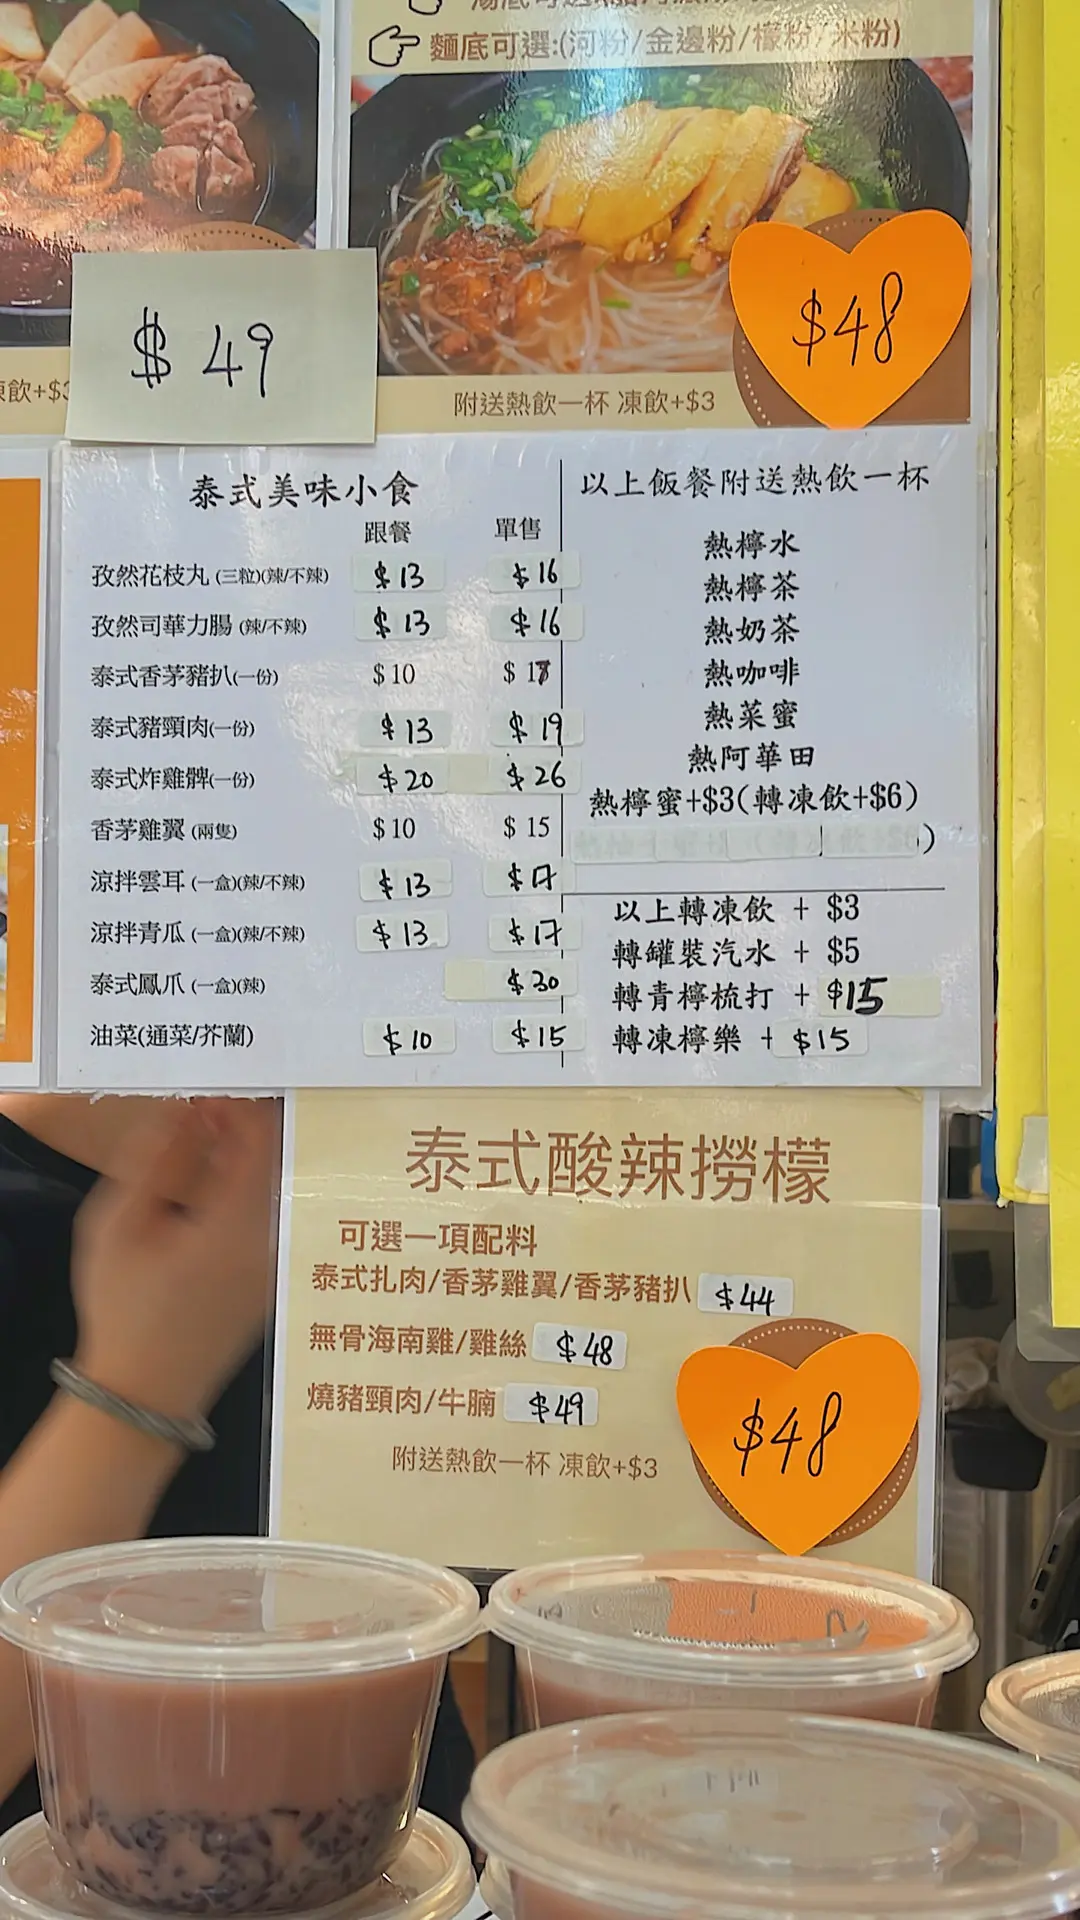 麵底可選:(河粉/金邊粉/檬粉/米粉)
$48
$49
飲+$3
附送熱飲一杯 凍飲+$3
泰式美味小食
跟餐 單售
孜然花枝丸 (三粒)(辣/不辣) $13 $16
孜然司華力腸 (辣/不辣) $13 $16
泰式香茅豬扒(一份) $10 $17
泰式豬頸肉(一份) $13 $19
泰式炸雞髀(一份) $20 $26
香茅雞翼 (兩隻) $10 $15
涼拌雲耳 (一盒)(辣/不辣) $13 $17
涼拌青瓜 (一盒)(辣/不辣) $13 $17
泰式鳳爪 (一盒)(辣) $30
油菜(通菜/芥蘭) $10 $15
以上飯餐附送熱飲一杯
熱檸水
熱檸茶
熱奶茶
熱咖啡
熱菜蜜
熱阿華田
熱檸蜜+$3(轉凍飲+$6)
)
以上轉凍飲 + $3
轉罐裝汽水 + $5
轉青檸梳打 + $15
轉凍檸樂 + $15
泰式酸辣撈檬
可選一項配料
泰式扎肉/香茅雞翼/香茅豬扒 $44
無骨海南雞/雞絲 $48
燒豬頸肉/牛腩 $49
附送熱飲一杯 凍飲+$3
$48